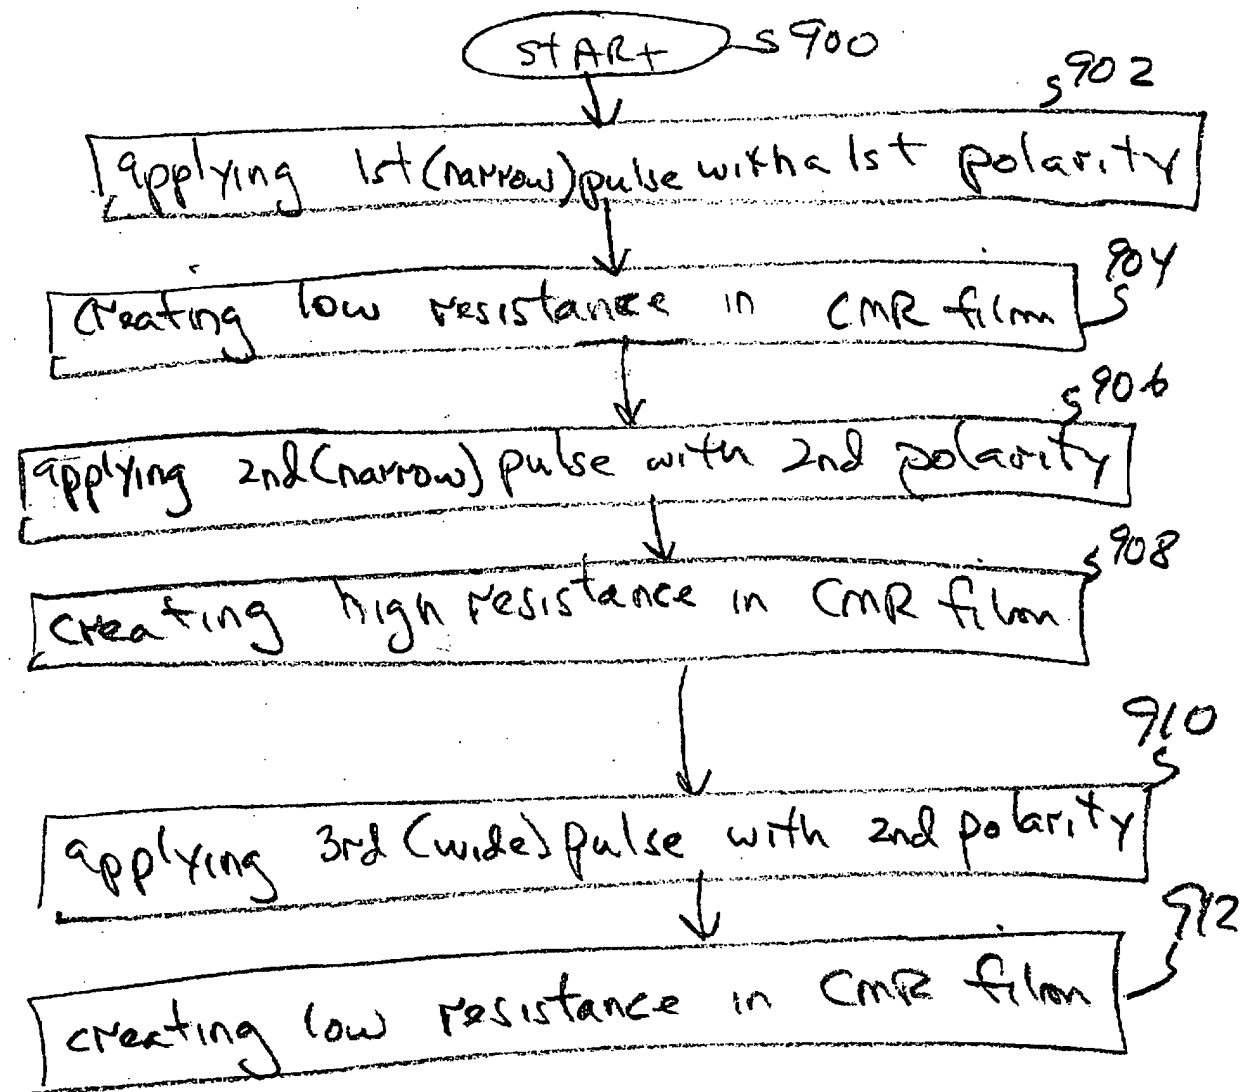 START 900
902
applying 1st (narrow) pulse with a 1st polarity
904
creating low resistance in CMR film
906
applying 2nd (narrow) pulse with 2nd polarity
908
creating high resistance in CMR film
910
applying 3rd (wide) pulse with 2nd polarity
912
creating low resistance in CMR film